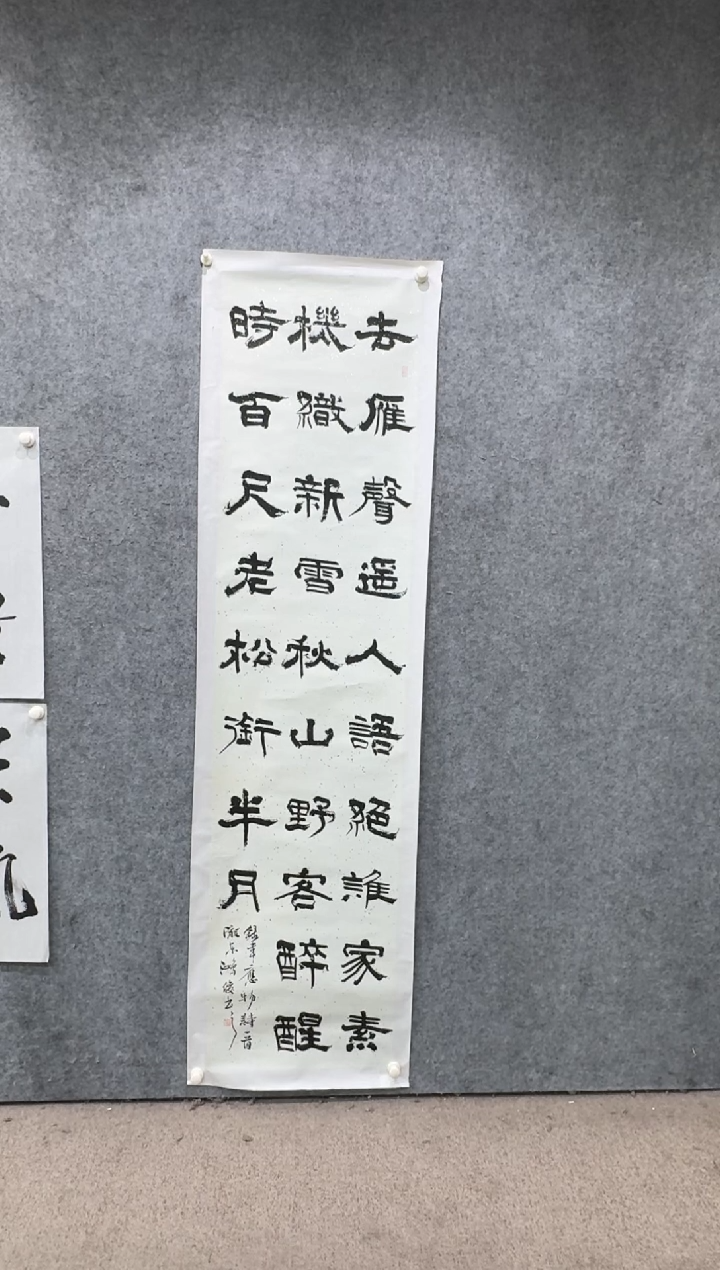 去雁聲遥人語絕誰家素
機織新雪秋山野客醉醒
時百尺老松銜半月
錄韋應物詩一首